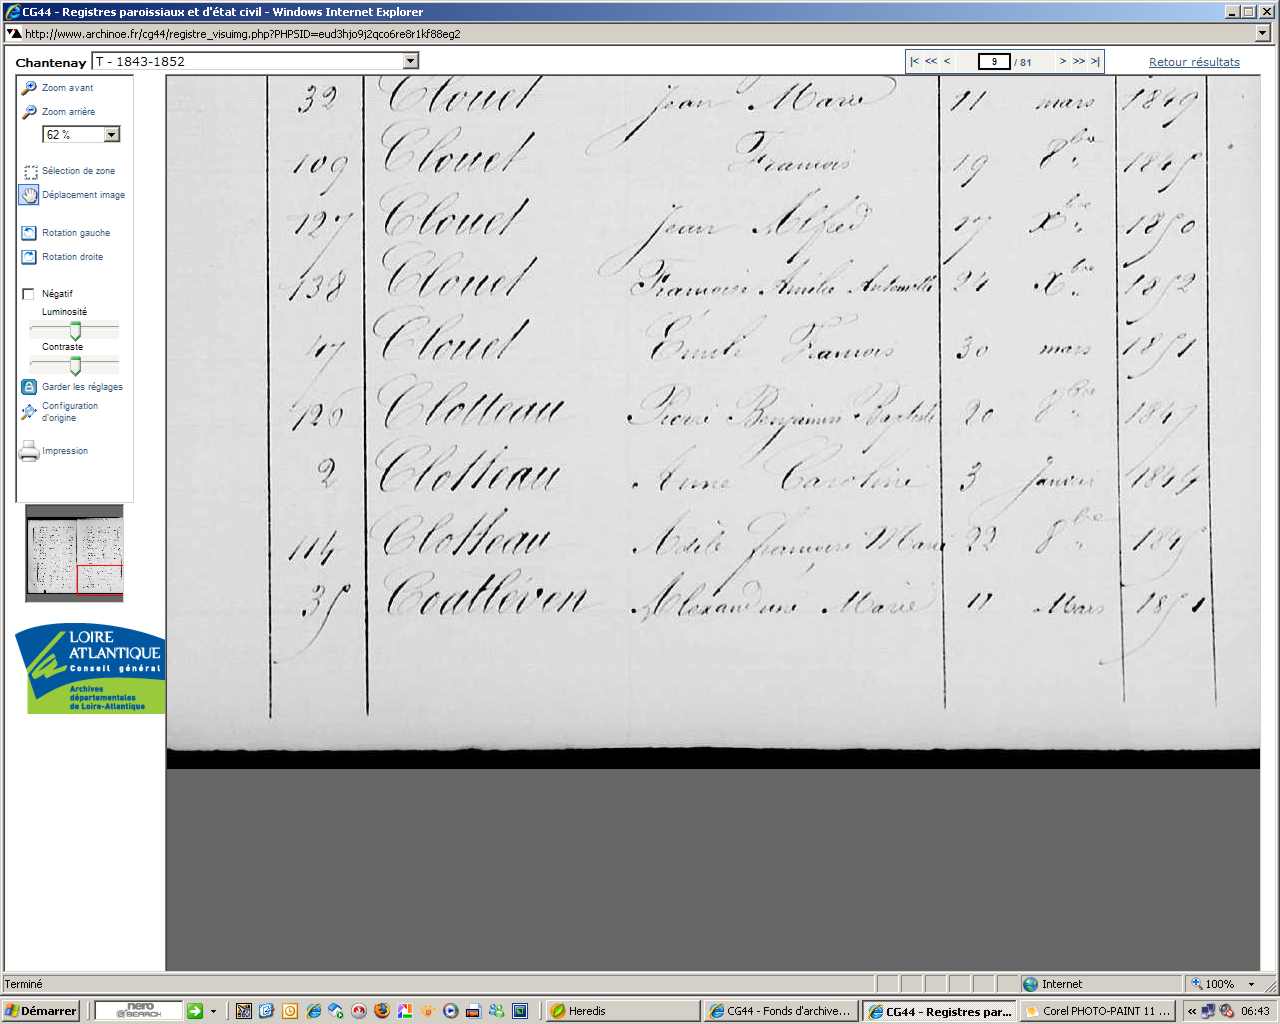 CG44 - Registres paroissiaux et d'état civil - Windows Internet Explorer
http://www.archinoe.fr/cg44/registre_visuimg.php?PHPSID=eud3hjo9j2qco6re8r1kf88eg2
Chantenay T - 1843-1852
|< << < 9 / 81 > >> >|
Retour résultats
Zoom avant
Zoom arrière
62 %
Sélection de zone
Déplacement image
Rotation gauche
Rotation droite
Négatif
Luminosité
Contraste
Garder les réglages
Configuration
d'origine
Impression
LOIRE
ATLANTIQUE
Conseil général
Archives
départementales
de Loire-Atlantique
32 Clouet Jean Marie 11 mars 1849
109 Clouet Francois 19 8bre 1845
127 Clouet Jean Alfred 17 Xbre 1850
138 Clouet Francoise Amélie Antoinette 24 Xbre 1852
47 Clouet Emile Francois 30 mars 1851
126 Clotteau Pierre Benjamin Baptiste 20 8bre 1847
2 Clotteau Anne Caroline 3 Janvier 1844
114 Clotteau Adèle Francoise Marie 22 8bre 1845
35 Coatléven Alexandrine Marie 11 Mars 1851
Terminé
Internet
100%
Démarrer
nero
SEARCH
Heredis
CG44 - Fonds d'archive...
CG44 - Registres par...
Corel PHOTO-PAINT 11 ...
«
06:43